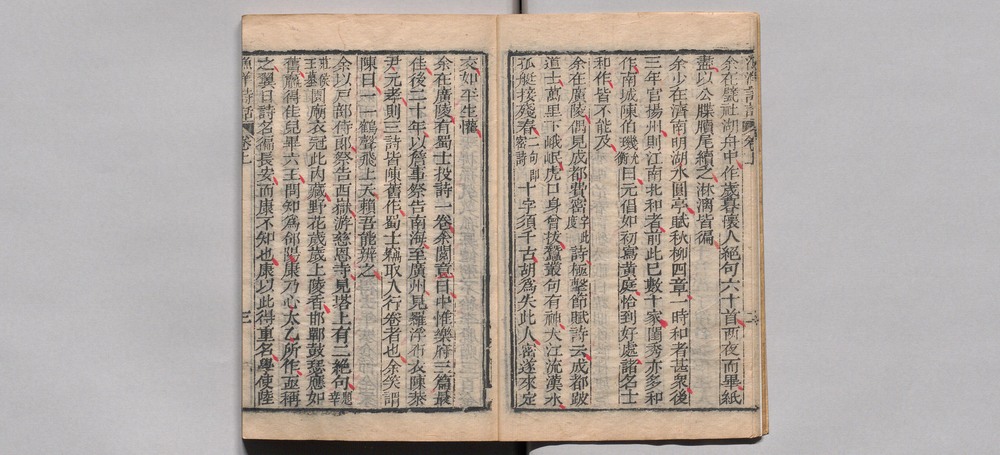 漁洋詩話 卷上
余在甓社湖舟中作歲暮懷人絕句六十首兩夜而畢紙
盡以公牒牘尾續之淋漓皆徧
余少在濟南明湖水面亭賦秋柳四章一時和者甚衆後
三年官揚州則江南北和者前此已數十家閨秀亦多和
作南城陳伯璣允衡曰元倡如初寫黃庭恰到好處諸名士
和作皆不能及
余在廣陵偶見成都費密字此度詩極擊節賦詩云成都跛
道士萬里下峨岷虎口身曾拔蠶叢句有神大江流漢水
孤艇接殘春二句即密詩十字須千古胡為失此人密遂來定
交如平生懽
余在廣陵有蜀士投詩一卷余閱竟曰中惟樂府三篇最
佳後二十年以詹事祭告南海至廣州見羅浮布衣陳恭
尹元孝則三詩皆陳舊作蜀士竊取入行卷者也余笑謂
陳曰一一鶴聲飛上天賴吾能辨之
余以戶部侍郎祭告西嶽游慈恩寺見塔上有二絕句題秦
莊襄王墓園廟衣冠此內藏野花歲歲上陵香邯鄲鼓瑟應如
舊贏得佳兒畢六王問知為郃陽康乃心太乙所作亟稱
之翼日詩名徧長安而康不知也康以此得重名學使陸
漁洋詩話 卷上 三